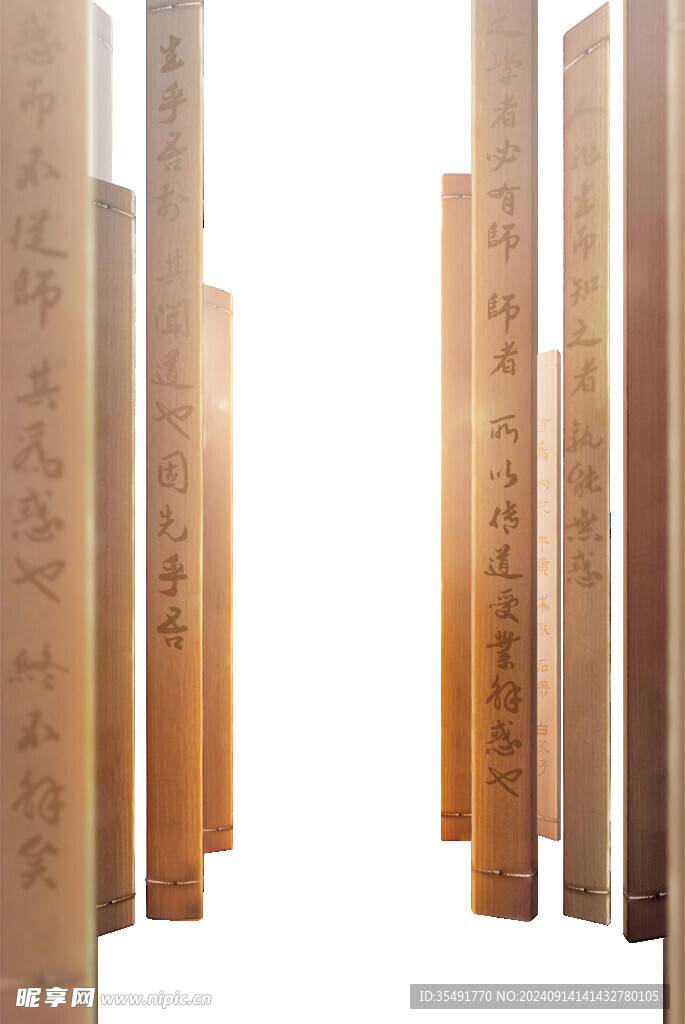 人非生而知之者孰能無惑
之學者必有師 師者 所以傳道受業解惑也
生乎吾前 其聞道也固先乎吾
惑而不從師 其為惑也 終不解矣
昵享网 www.nipic.cn
ID:35491770 NO:20240914141432780105